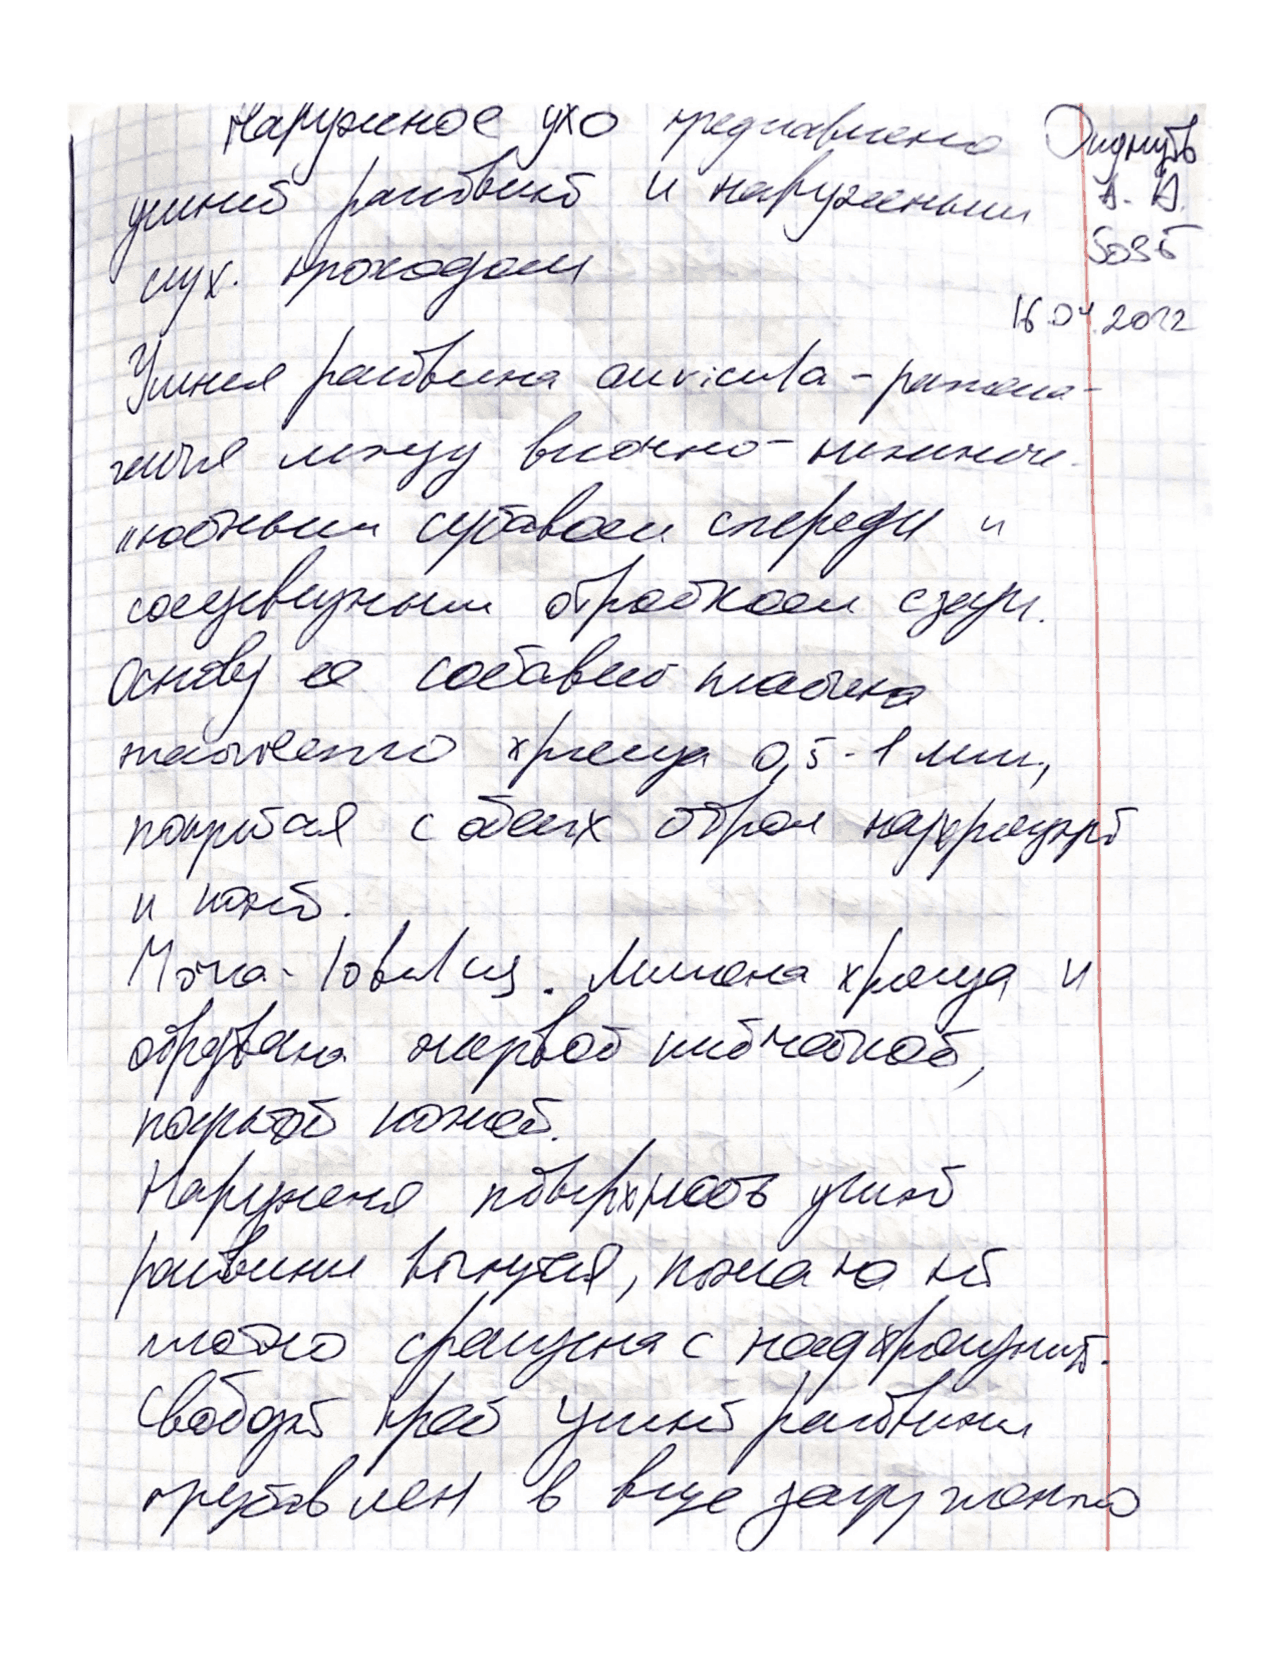 Наружное ухо представлено
ушной раковиной и наружным
слух. проходом
А. А.
503Б
16.04.2022
Ушная раковина auricula - располо-
жена между височно-нижнече-
люстным суставом спереди и
сосцевидным отростком сзади.
Основу её составляет пластина
эластичного хряща 0,5-1 мм,
покрытая с обеих сторон надхрящницей
и кожей.
Мочка - lobulus. Лишена хряща и
образована жировой клетчаткой,
покрытой кожей.
Наружная поверхность ушной
раковины вогнутая, кожа на ней
плотно сращена с надхрящницей.
Свободный край ушной раковины
представлен в виде